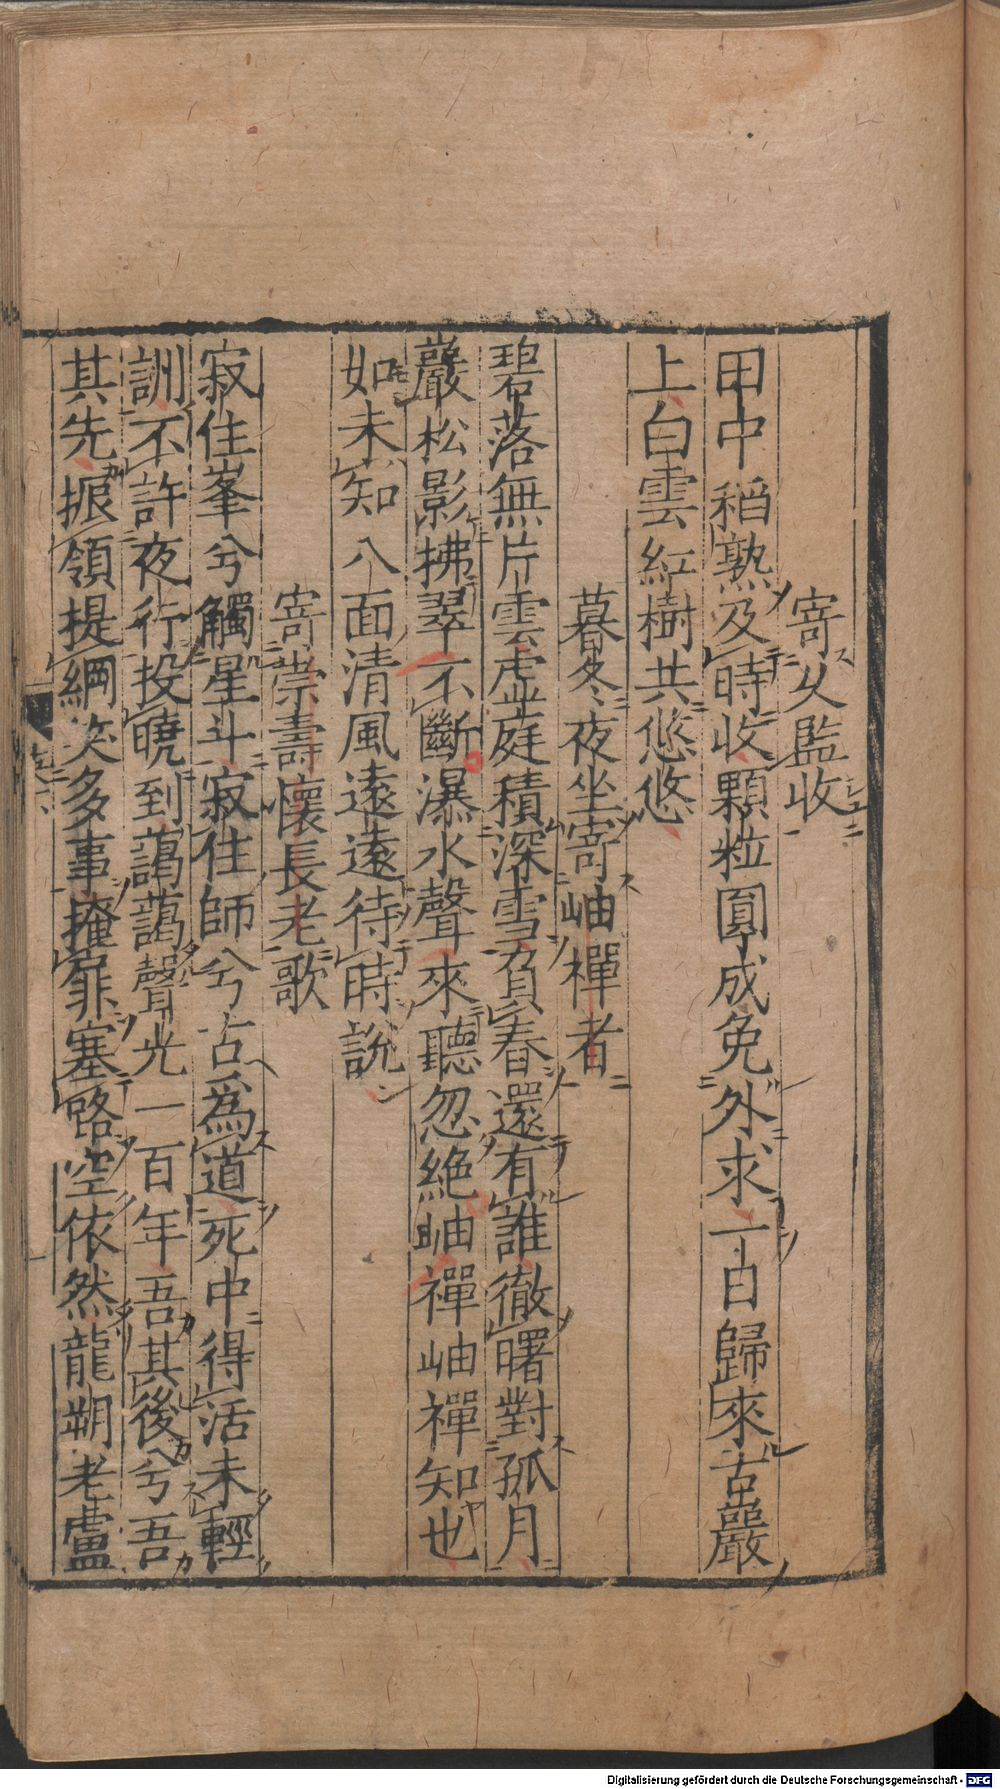 寄乂監収
田中稻熟及時收顆粒圓成免外求一日歸來古巖
上白雲紅樹共悠悠
暮冬夜坐寄岫禪者
碧落無片雲虛庭積深雪負春還有誰徹曙對孤月
巖松影拂翠不斷瀑水聲來聽忽絶岫禪岫禪知也
如未知八面清風遠遠待時説
寄崇壽懷長老歌
寂住峯兮觸星斗寂住師兮占爲道死中得活未輕
訓不許夜行投曉到藹藹聲光一百年吾其後兮吾
其先振領提綱笑多事掩扉塞路空依然龍朔老盧
Digitalisierung gefördert durch die Deutsche Forschungsgemeinschaft - DFG